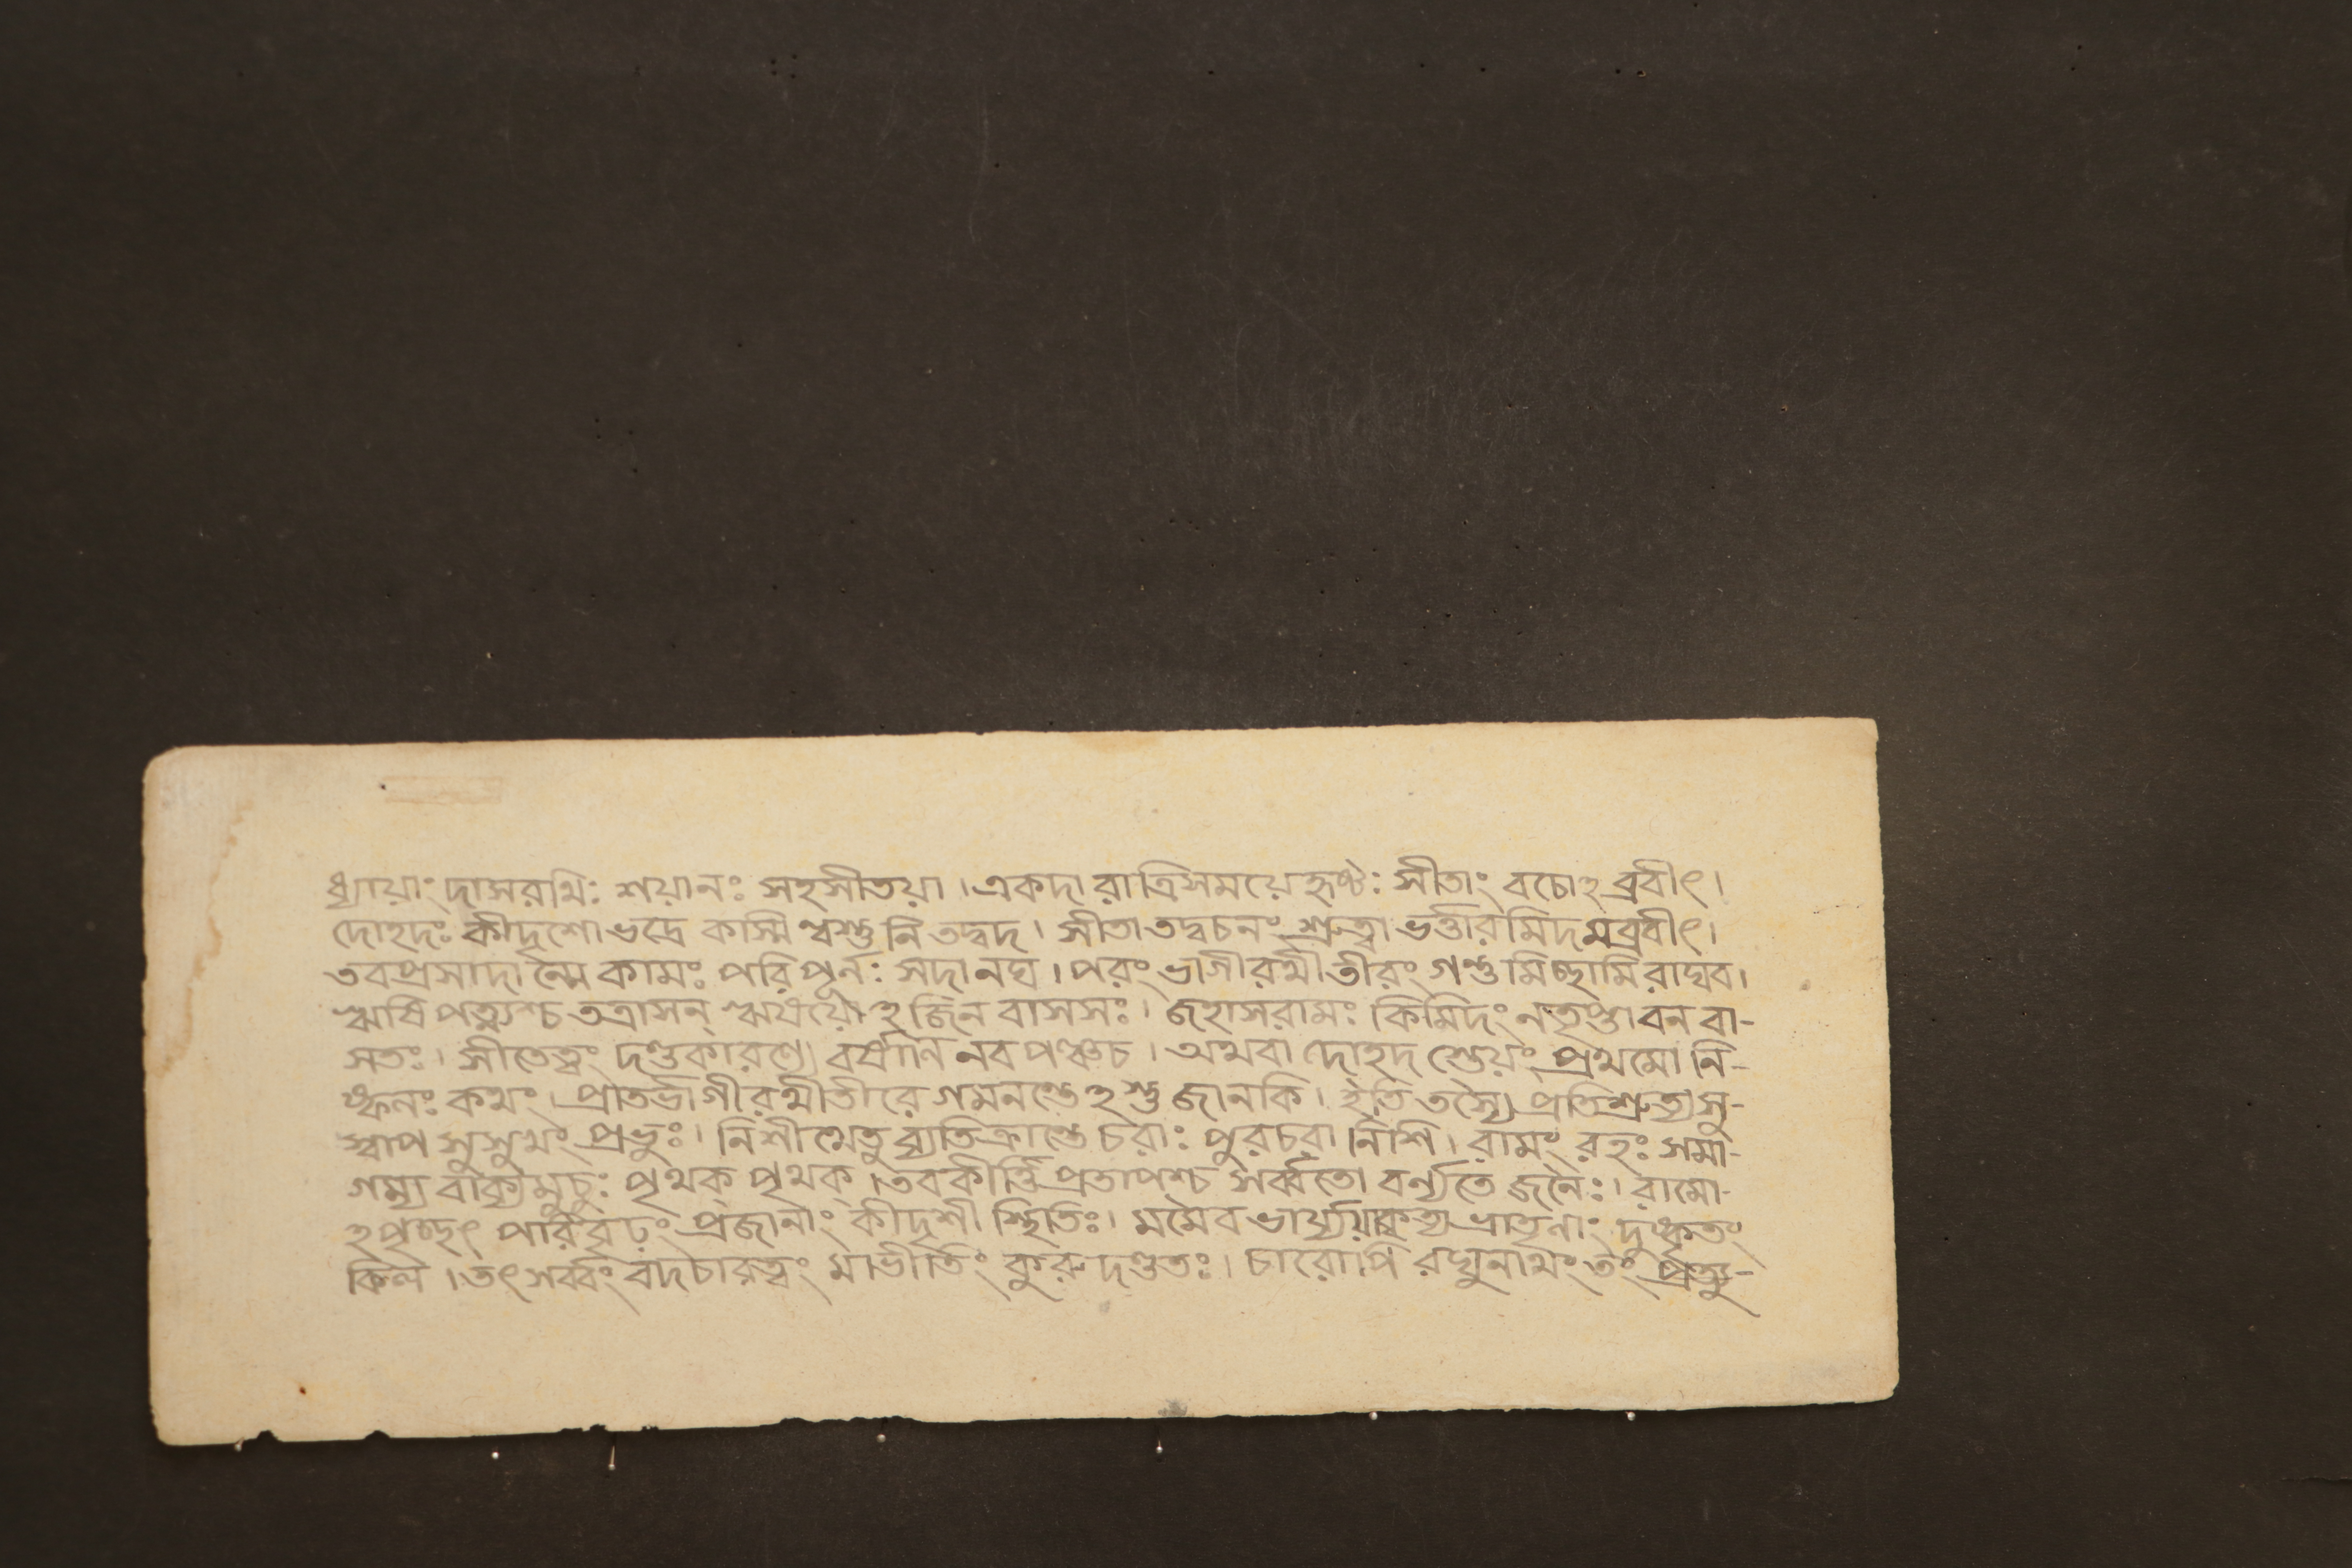 ধ্যায়াং দাসরথিঃ শয়ানঃ সহসীতয়া । একদা রাত্রিসময়ে হৃষ্টঃ সীতাং বচোঽব্রবীৎ ।
দোহদঃ কীদৃশো ভদ্রে কাস্মি ন্বস্তুনি তদ্বদ । সীতা তদ্বচনং শ্রুত্বা ভর্ত্তারমিদমব্রবীৎ ।
তবপ্রসাদান্মে কামঃ পরিপূর্নঃ সদানঘ । পরং ভাগীরথীতীরং গন্তুমিচ্ছামি রাঘব ।
ঋষিপত্ন্যশ্চ তত্রাসন্ ঋষয়োঽজিন বাসসঃ । জহাসরামঃ কিমিদং নতৃপ্তা বন বা-
সতঃ । সীতেত্বং দণ্ডকারণ্যে বর্ষাণি নব পঞ্চচ । অথবা দোহদ স্তেয়ং প্রথমো নি-
ষ্ফলঃ কথং । প্রাতর্ভাগীরথীতীরে গমনন্তেঽস্তু জানকি । ইতি তস্যৈ প্রতিশ্রুত্য সু-
স্বাপ সুসুখং প্রভুঃ । নিশীথেতু ব্যতিক্রান্তে চরাঃ পুরচরা নিশি । রামং রহঃ সমা-
গম্য বাক্যমুচুঃ পৃথক্ পৃথক্ । তবকীর্ত্তি প্রতাপশ্চ সর্ব্বতো বর্ণ্যতে জনৈঃ । রামো-
ঽপৃচ্ছৎ পরিবৃঢং প্রজানাং কীদৃশী স্থিতিঃ । মমৈব ভার্য্যয়া ভ্রাতৃনাং দুষ্কৃতং
কিল । তৎ সর্ব্বং বদচারত্বং মাভীতিং কুরু দণ্ডতঃ । চারোপি রঘুনাথং তং প্রত্যু-